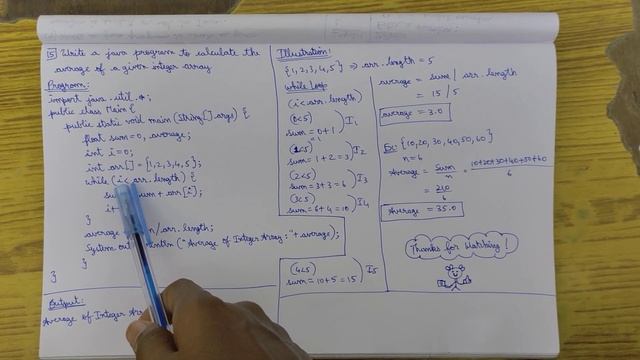 5) Write a java program to calculate the
average of a given integer array
Program:
import java.util.*;
public class Main {
public static void main (String[] args) {
float sum=0, average;
int i=0;
int arr[] = {1,2,3,4,5};
while (i<arr.length) {
sum + arr[i];
i+
}
average /arr.length;
System.out ("Average of Integer Array: "+ average);
}
}
Output:
Average of Integer Arr
Illustration:
{1,2,3,4,5} ⇒ arr.length = 5
While Loop
(i<arr.length)
(0<5)
sum = 0+1 I1
=1
(1<5)
sum = 1+2 = 3 I2
(2<5)
sum = 3+3 = 6 I3
(3<5)
sum = 6+4 = 10 I4
(4<5)
sum = 10+5 = 15 I5
average = sum / arr.length
= 15 / 5
average = 3.0
Ex: {10,20,30,40,50,60}
n=6
Average = Sum/n = 10+20+30+40+50+60/6
= 210/6
Average = 35.0
Thanks for Watching!